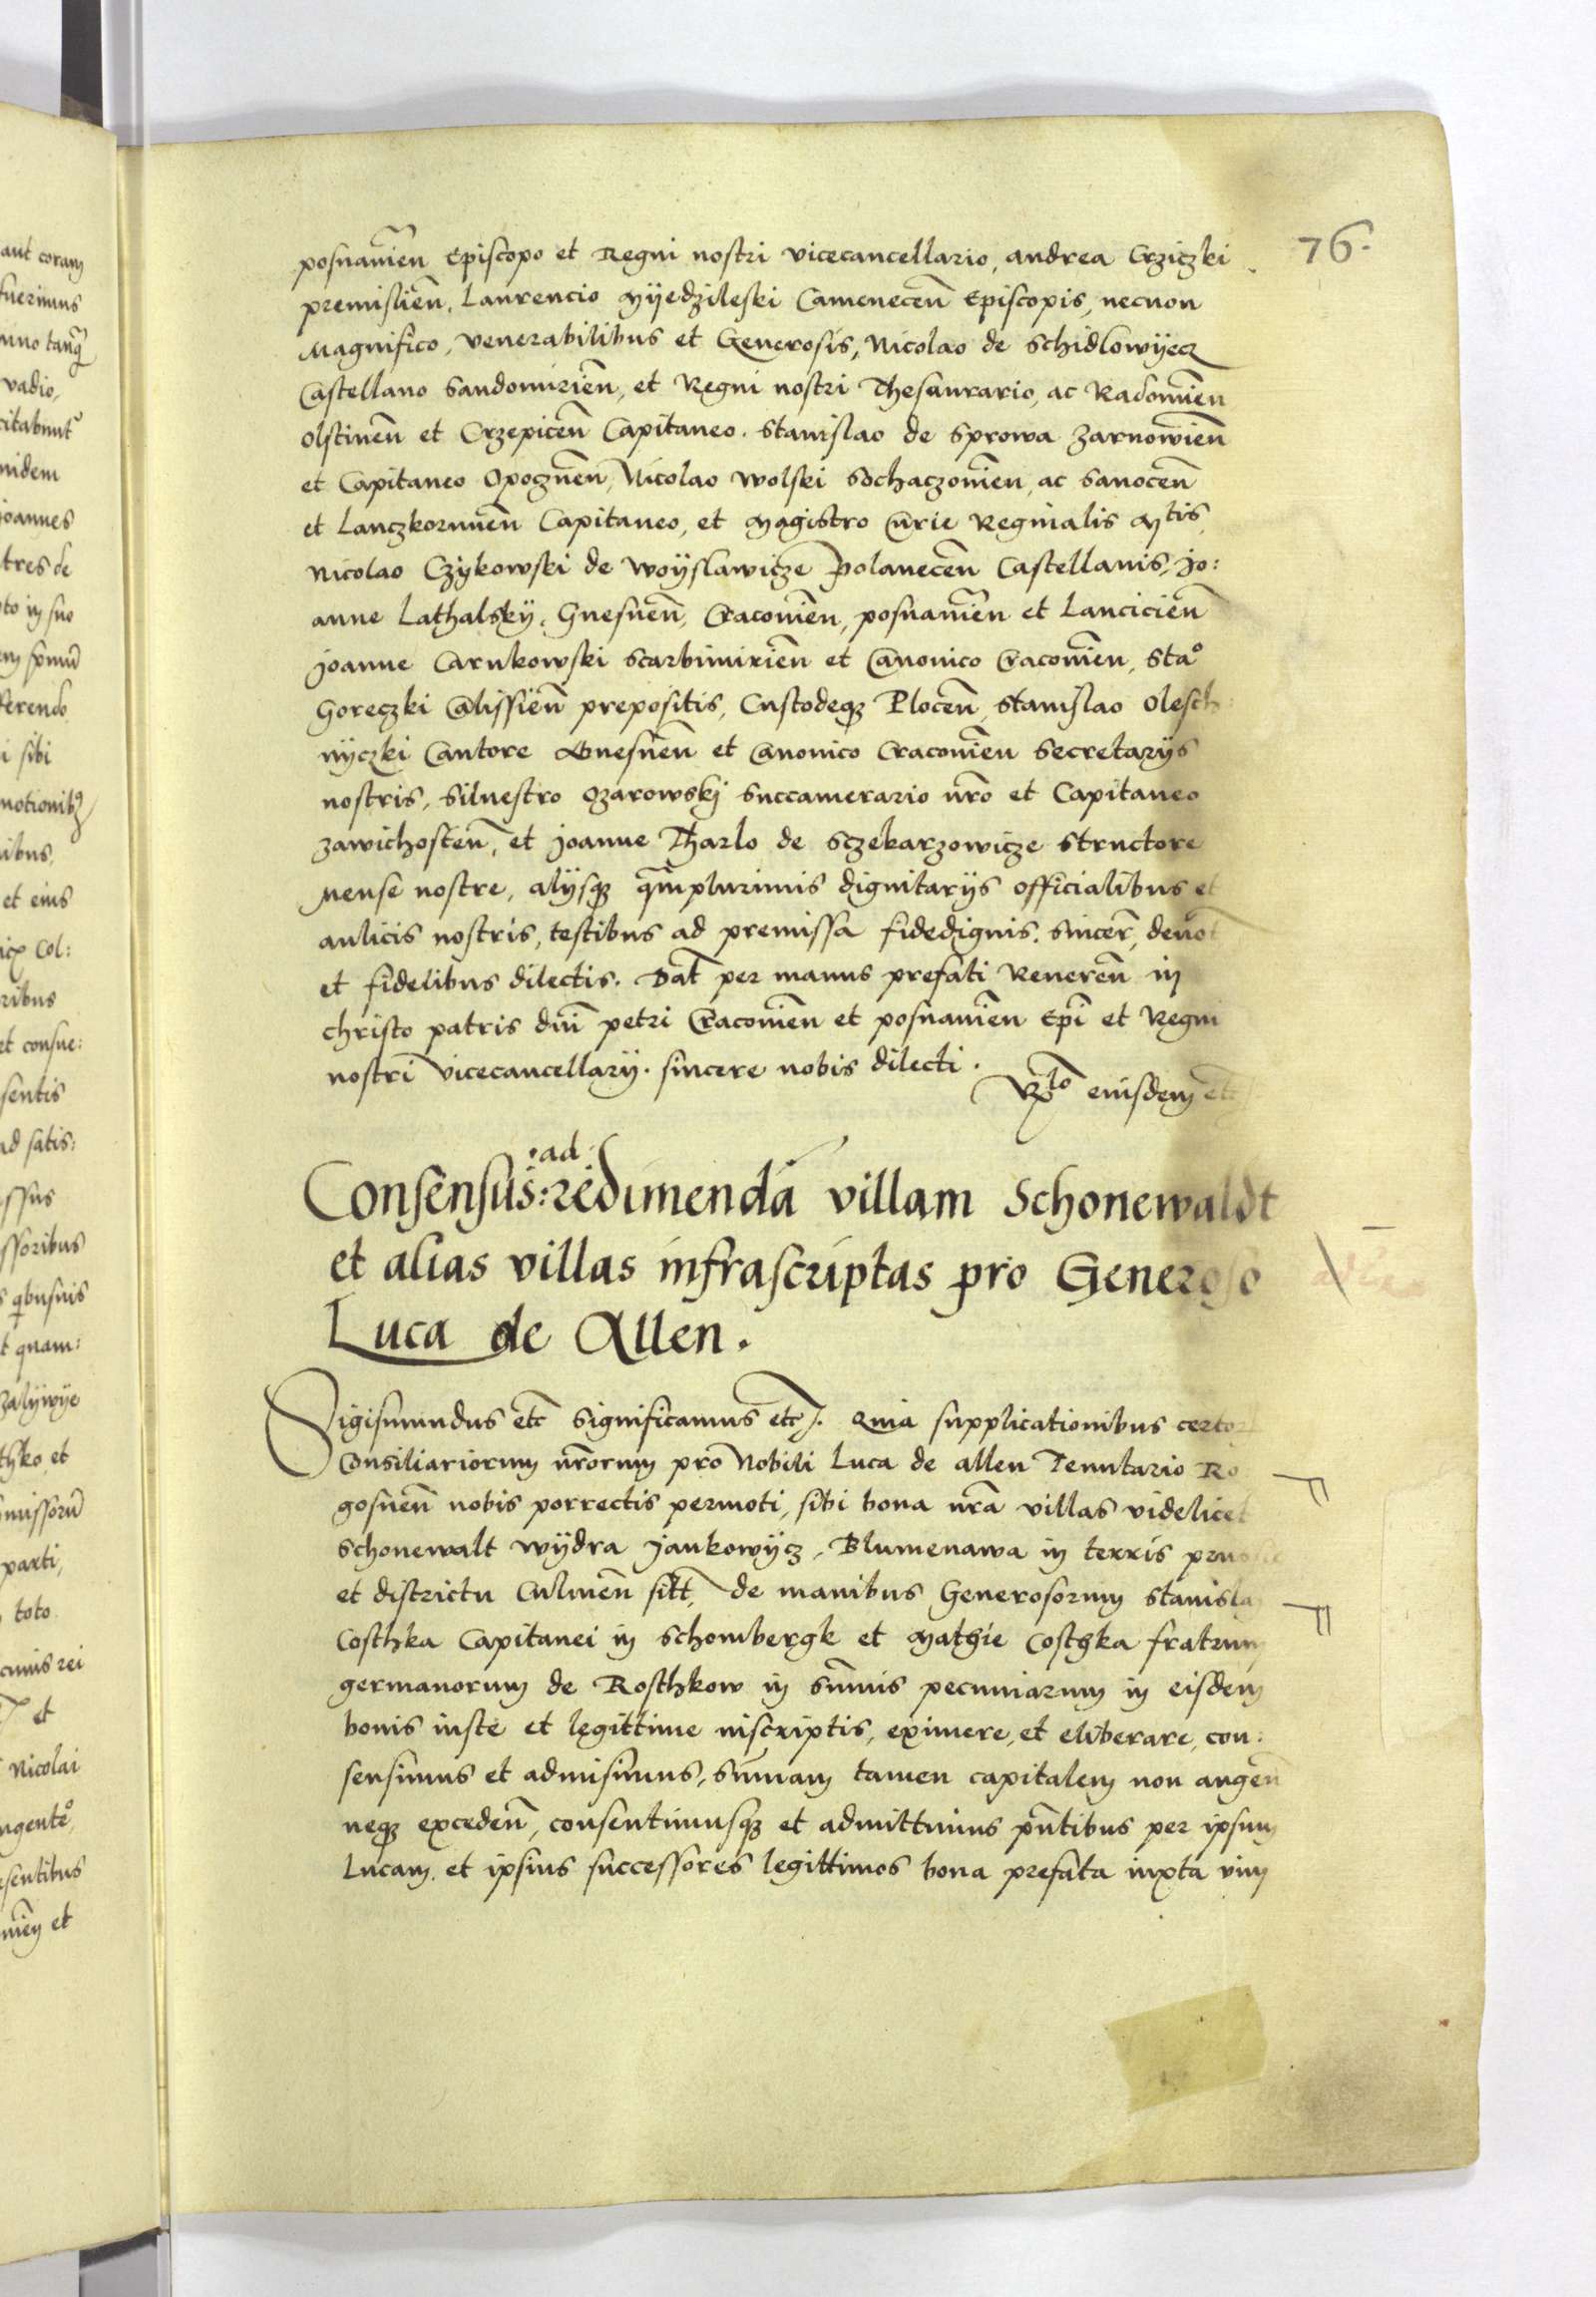 76.
posnanien̄ Episcopo et Regni nostri vicecancellario, andrea Crziczki
premislien̄, Laurencio Myedzileski Camenecen̄ Episcopis, necnon
Magnifico, venerabilibus et Generosis, Nicolao de Schidlowyecz
Castellano Sandomirien̄, et Regni nostri Thesaurario, ac Radomien̄
Olstinen̄ et Crzepicen̄ Capitaneo. Stanislao de Sprowa Zarnowien̄
et Capitaneo Opocznen̄, Nicolao Wolski Sochaczovien̄, ac Sanocen̄
et Lanczkorunen̄ Capitaneo, et Magistro Curie Reginalis Mtis,
Nicolao Czykowski de Woyslawicze Polanecen̄ Castellanis, Jo:
anne Lathalsky, Gnesnen̄, Cracovien̄, posnanien̄ et Lancicien̄
Joanne Carnkowski Scarbimirien̄ et Canonico Cracovien̄, Stao
Goreczki Calissien̄ prepositis, Custodeqȝ Plocen̄, Stanislao Olesch:
nyczki Cantore Gnesnen̄ et Canonico Cracovien̄ Secretarys
nostris, Silvestro Ozarowskj Succamerario nr̄o et Capitaneo
Zawichosten̄, et Joanne Tharlo de Sczekarzowicze structore
Mense nostre, alysqȝ qm̄plurimis dignitarys officialibus et
aulicis nostris, testibus ad premissa fidedignis. Sincer̄, devot
et fidelibus dilectis. Dat̄ per manus prefati Reveren̄ in
christo patris dn̄i petri Cracovien̄ et posnanien̄ Ep̄i et Regni
nostri vicecancellary. sincere nobis dilecti.
Rlo eiusdem etc
Consensus :ad: redimendā villam Schonewaldt
et alias villas infrascriptas pro Generoso
Luca de Allen.
Sigismundus etc̄ Significamus etc̄. Quia supplicationibus certor
Consiliariorum nr̄orum pro Nobili Luca de allen Tenutario Ro
gosnen̄ nobis porrectis permoti, sibi bona nr̄a villas videlicet
Schonewalt Wydra Jankowycz, Blumenawa in terris prussie
et districtu Culmen̄ sitt̄, de manibus Generosorum Stanislai
Costhka Capitanei in Schombergk et Mathie Costhka fratrum
germanorum de Rosthkow in sum̄is pecuniarum in eisdem
bonis iuste et legittime inscriptis, eximere, et eliberare, con:
sensimus et admisimus, sum̄am tamen capitalem non augen̄
neqȝ exceden̄, consentimusqȝ et admittimus pn̄tibus per ipsum
Lucam, et ipsius successores legittimos bona prefata iuxta vim